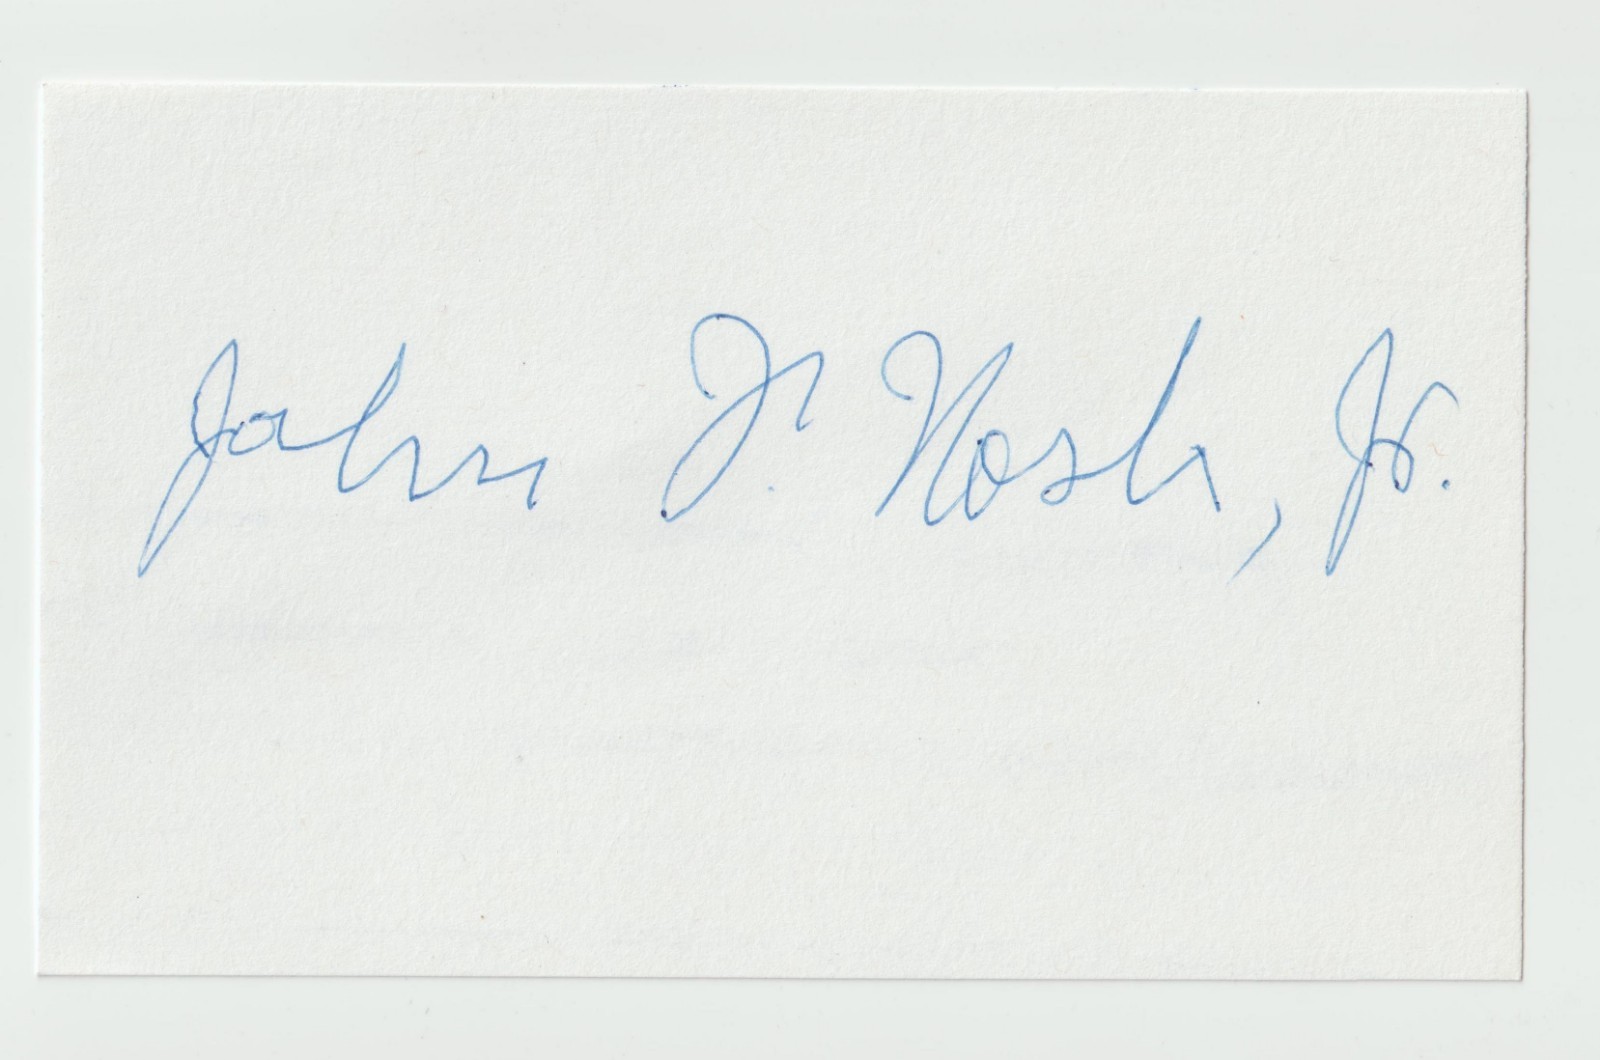 John F. Nash, Jr.